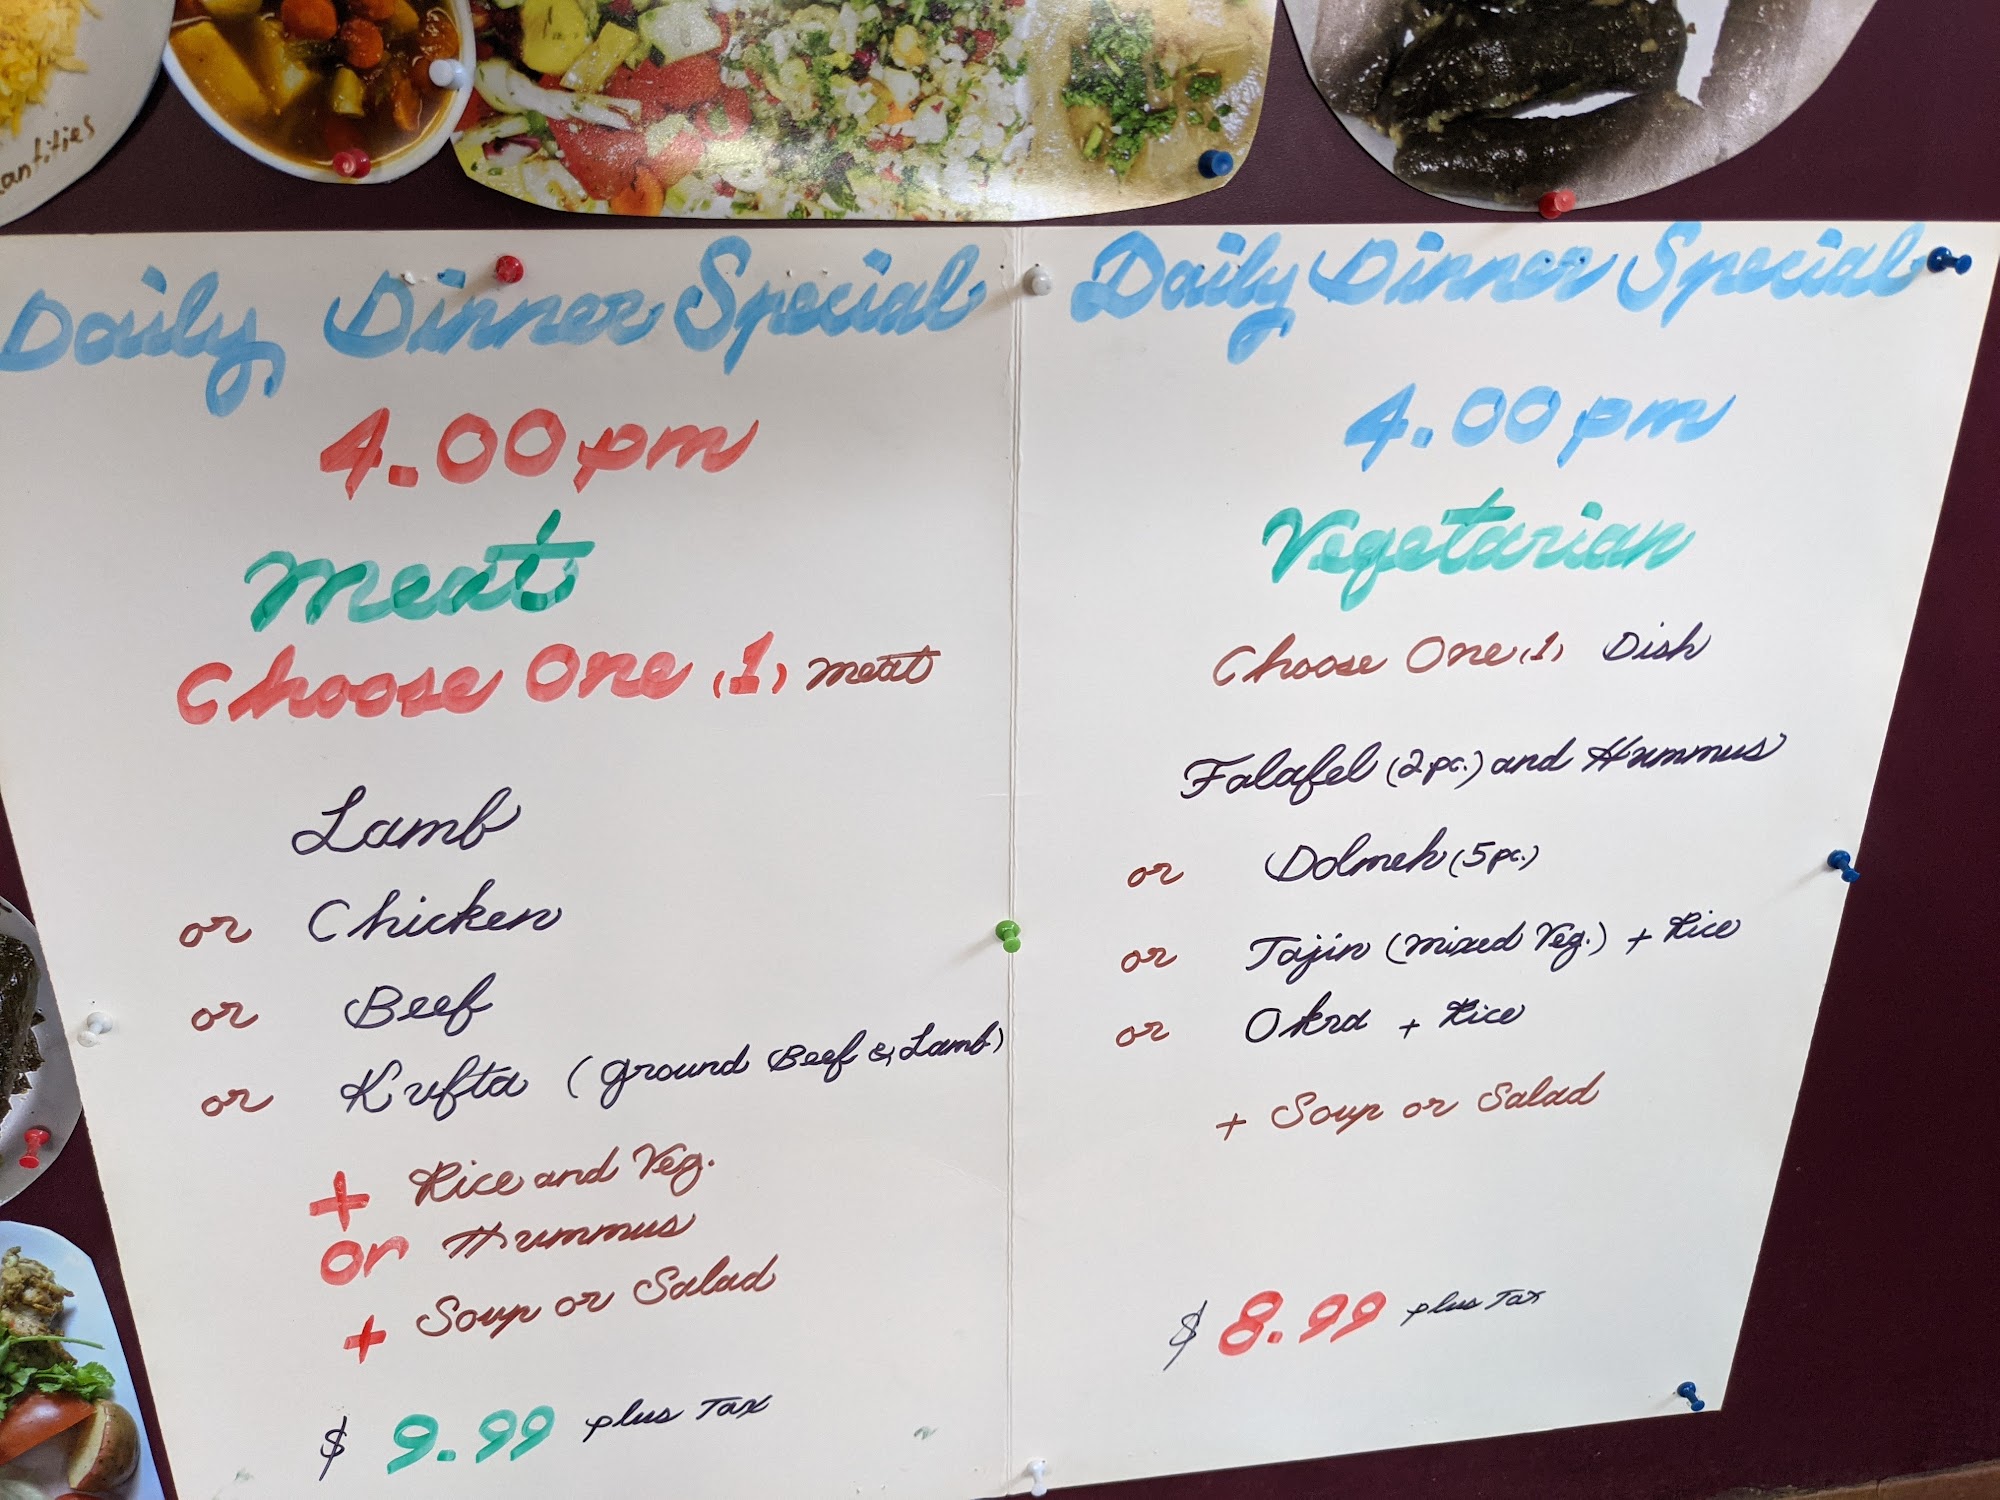 antities
Daily Dinner Special
4.00 pm
Meat
Choose One (1) meat
Lamb
or Chicken
or Beef
or Kufta (ground Beef & Lamb)
+ Rice and Veg.
or Hummus
+ Soup or Salad
$ 9.99 plus Tax
Daily Dinner Special
4.00 pm
Vegetarian
Choose One (1) Dish
Falafel (2 pc.) and Hummus
or Dolmeh (5 pc.)
or Tajin (mixed Veg.) + Rice
or Okra + Rice
+ Soup or Salad
$ 8.99 plus Tax